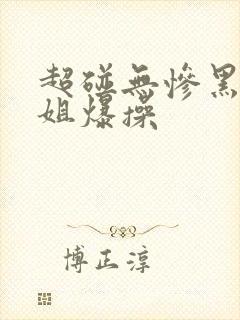 超碰無慘黑
姐爆操
博正淳